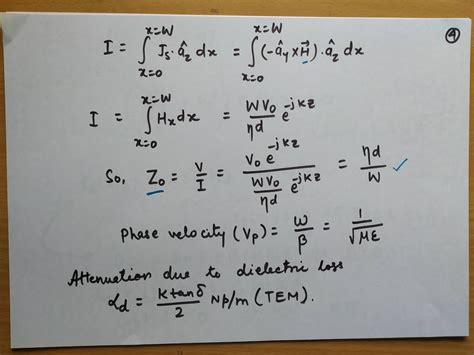 ④
I = ∫_{x=0}^{x=W} J̄s·â_z dx = ∫_{x=0}^{x=W} (-â_y × H̄)·â_z dx
I = ∫_{x=0}^{x=W} Hx dx = WV₀/ηd e^{-jkz}
So, Z₀ = V/I = V₀ e^{-jkz} / (WV₀/ηd e^{-jkz}) = ηd/W ✓
Phase velocity (Vp) = ω/β = 1/√με
Attenuation due to dielectric loss
α_d = k tanδ/2 Np/m (TEM).